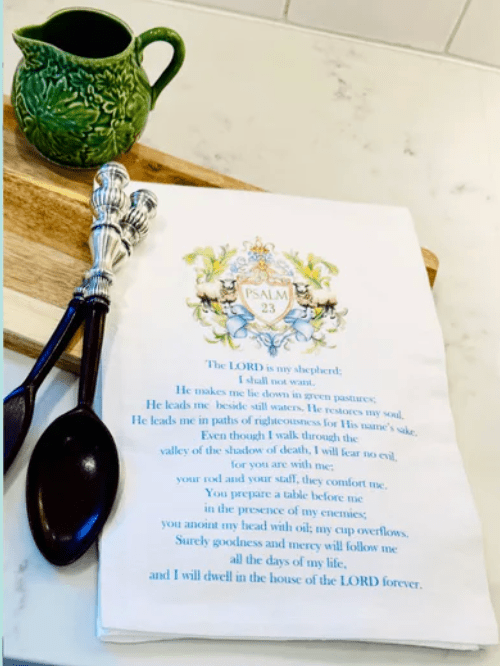 PSALM
23
The LORD is my shepherd;
I shall not want.
He makes me lie down in green pastures;
He leads me beside still waters. He restores my soul.
He leads me in paths of righteousness for His name's sake.
Even though I walk through the
valley of the shadow of death, I will fear no evil,
for you are with me;
your rod and your staff, they comfort me.
You prepare a table before me
in the presence of my enemies;
you anoint my head with oil; my cup overflows.
Surely goodness and mercy will follow me
all the days of my life,
and I will dwell in the house of the LORD forever.